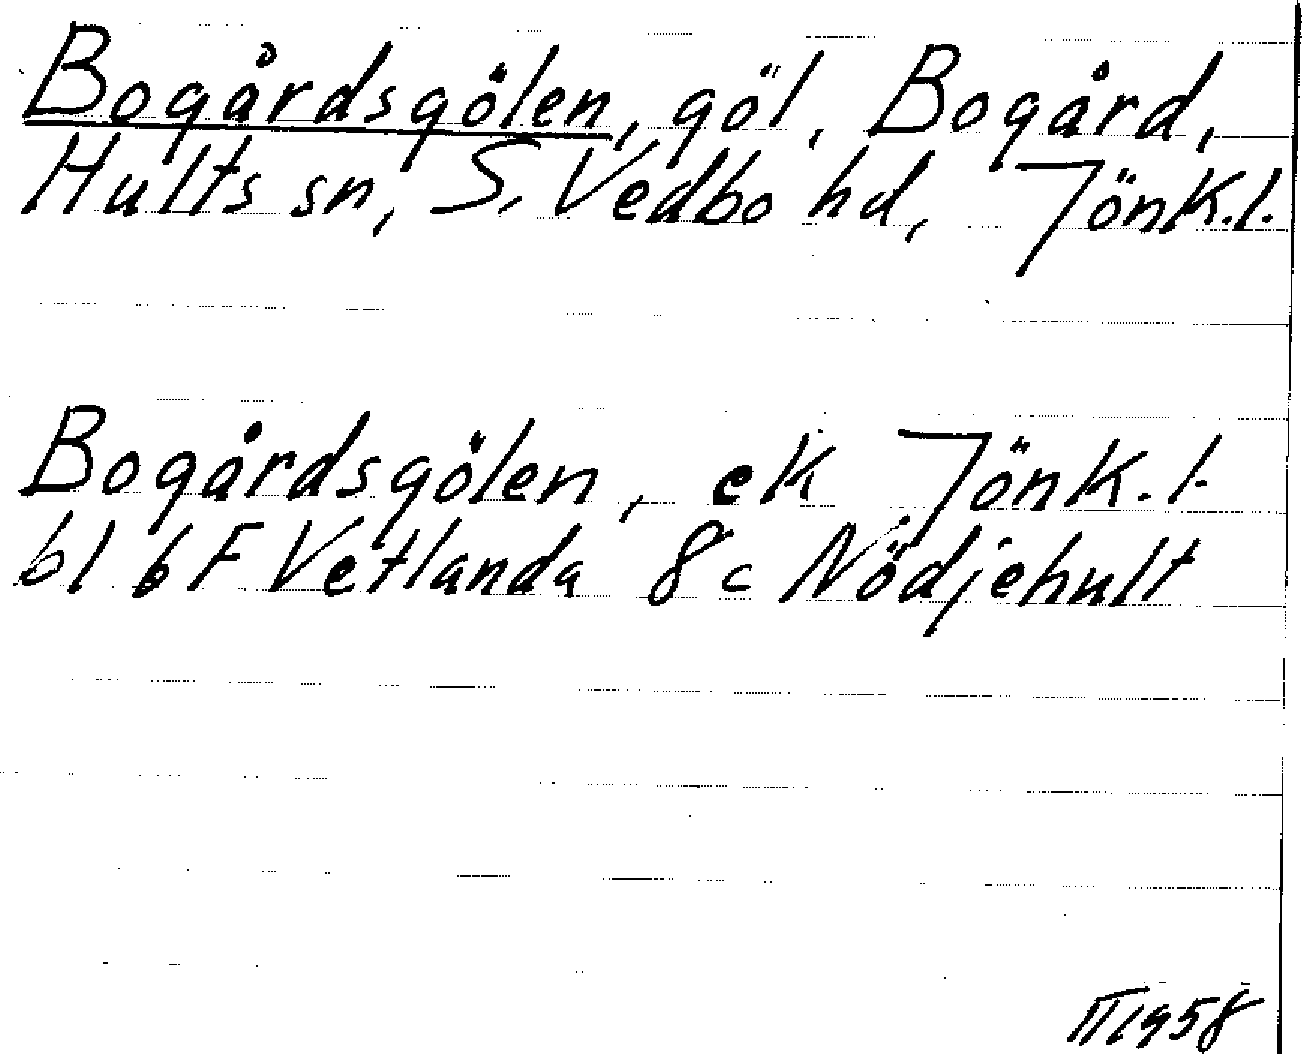 Bogårdsgölen, göl, Bogård,
Hults sn, S. Vedbo hd, Jönk.l.
Bogårdsgölen, ek Jönk.l.
bl 6F Vetlanda 8c Nödjehult
II 1958